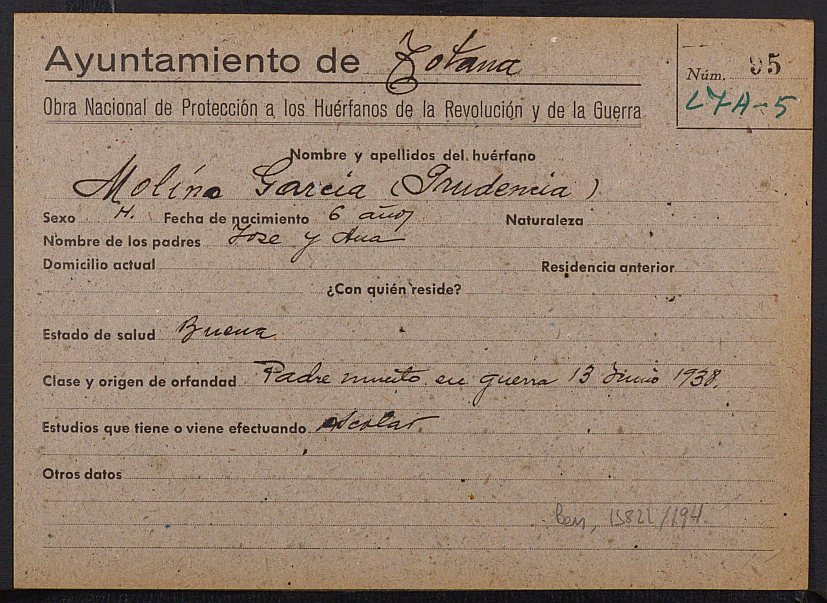 Ayuntamiento de Totana
Núm. 95
L7A-5
Obra Nacional de Protección a los Huérfanos de la Revolución y de la Guerra
Nombre y apellidos del huérfano
Molina Garcia (Prudencia)
Sexo H. Fecha de nacimiento 6 años Naturaleza
Nombre de los padres Jose y Ana
Domicilio actual Residencia anterior
¿Con quién reside?
Estado de salud Buena
Clase y origen de orfandad Padre muerto en guerra 13 Junio 1938.
Estudios que tiene o viene efectuando escolar
Otros datos
15822/194.